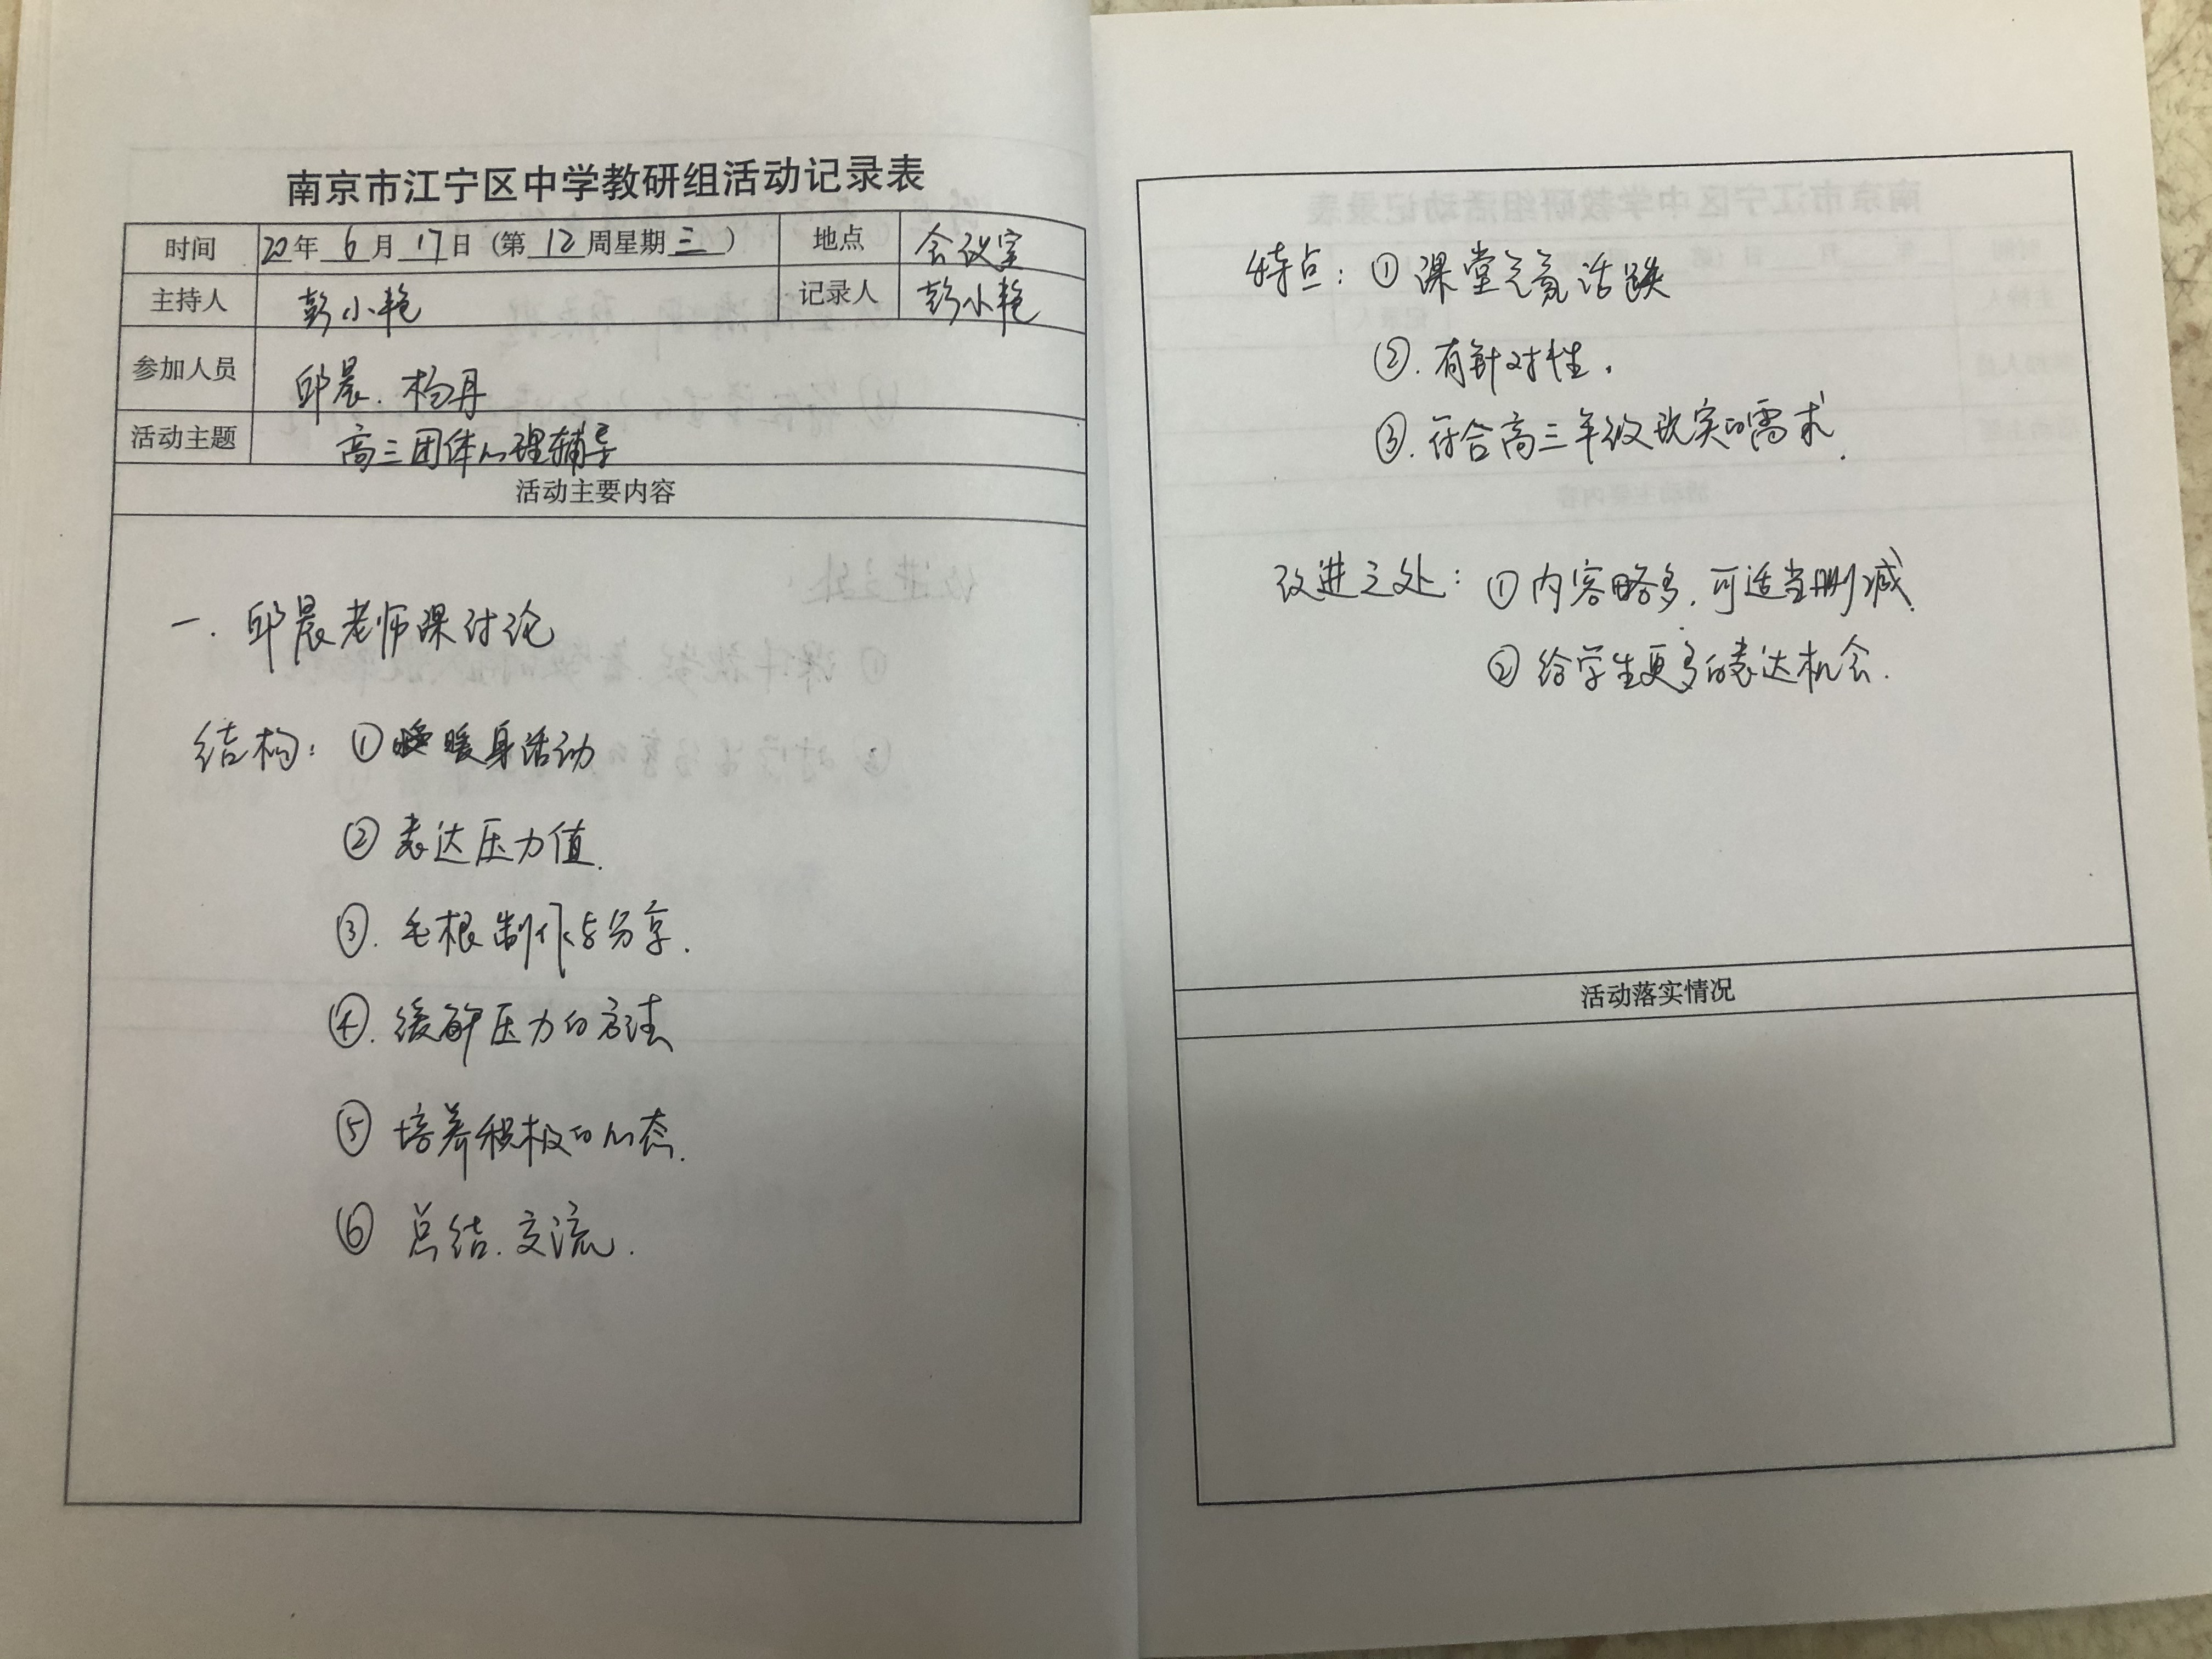 南京市江宁区中学教研组活动记录表
时间 20年 6 月 17 日 (第 12 周星期 三 ) 地点 会议室
主持人 彭小艳 记录人 彭小艳
参加人员 邱晨. 杨丹
活动主题 高三团体心理辅导
活动主要内容
一. 邱晨老师课讨论
结构: ① 暖身活动
② 表达压力值.
③. 毛根制作与分享.
④. 缓解压力的方法
⑤ 培养积极的心态.
⑥ 总结. 交流.
特点: ① 课堂气氛活跃
②. 有针对性.
③. 符合高三年级现实的需求.
改进之处: ① 内容略多, 可适当删减.
② 给学生更多的表达机会.
活动落实情况